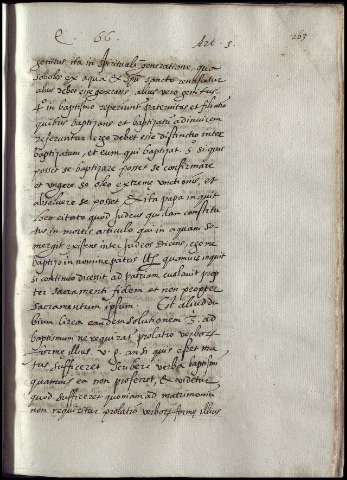 Q. 66. Art. 5. 203
genitus, ita in spirituali generatione, qua
soboles ex aqua et spu sancto
alius debet esse generans, alius vero genitus.
et in baptismo reperiuntur paternitas et filiatio
quibus baptizans et baptizatus adinvicem
referuntur ergo debet esse distinctio inter
baptizatum, et eum qui baptizat. si quis
posset se baptizare posset se confirmare
et ungere se oleo extreme unctionis, et
absolvere se posset. Et ita papa inquit
loco citato quod Judeus quidam constitu
tus in mortis articulo qui in aquam se
mergit existens inter Judeos dicens, ego me
baptizo in nomine patris quamvis inquit
si continuo discessit, ad patriam evolavit prop
ter sacramenti fidem et non propter
Sacramentum ipsum. Est aliud du
bium circa eandem solutionem ad
baptismum ne requirat prolatio verborum
forme illius v. g. an si quis esset mu
tus, sufficeret scribere verba baptismi
quamvis ea non proferret, et videtur
quod sufficeret quoniam ad matrimonium
non requiritur prolatio verborum forme illius